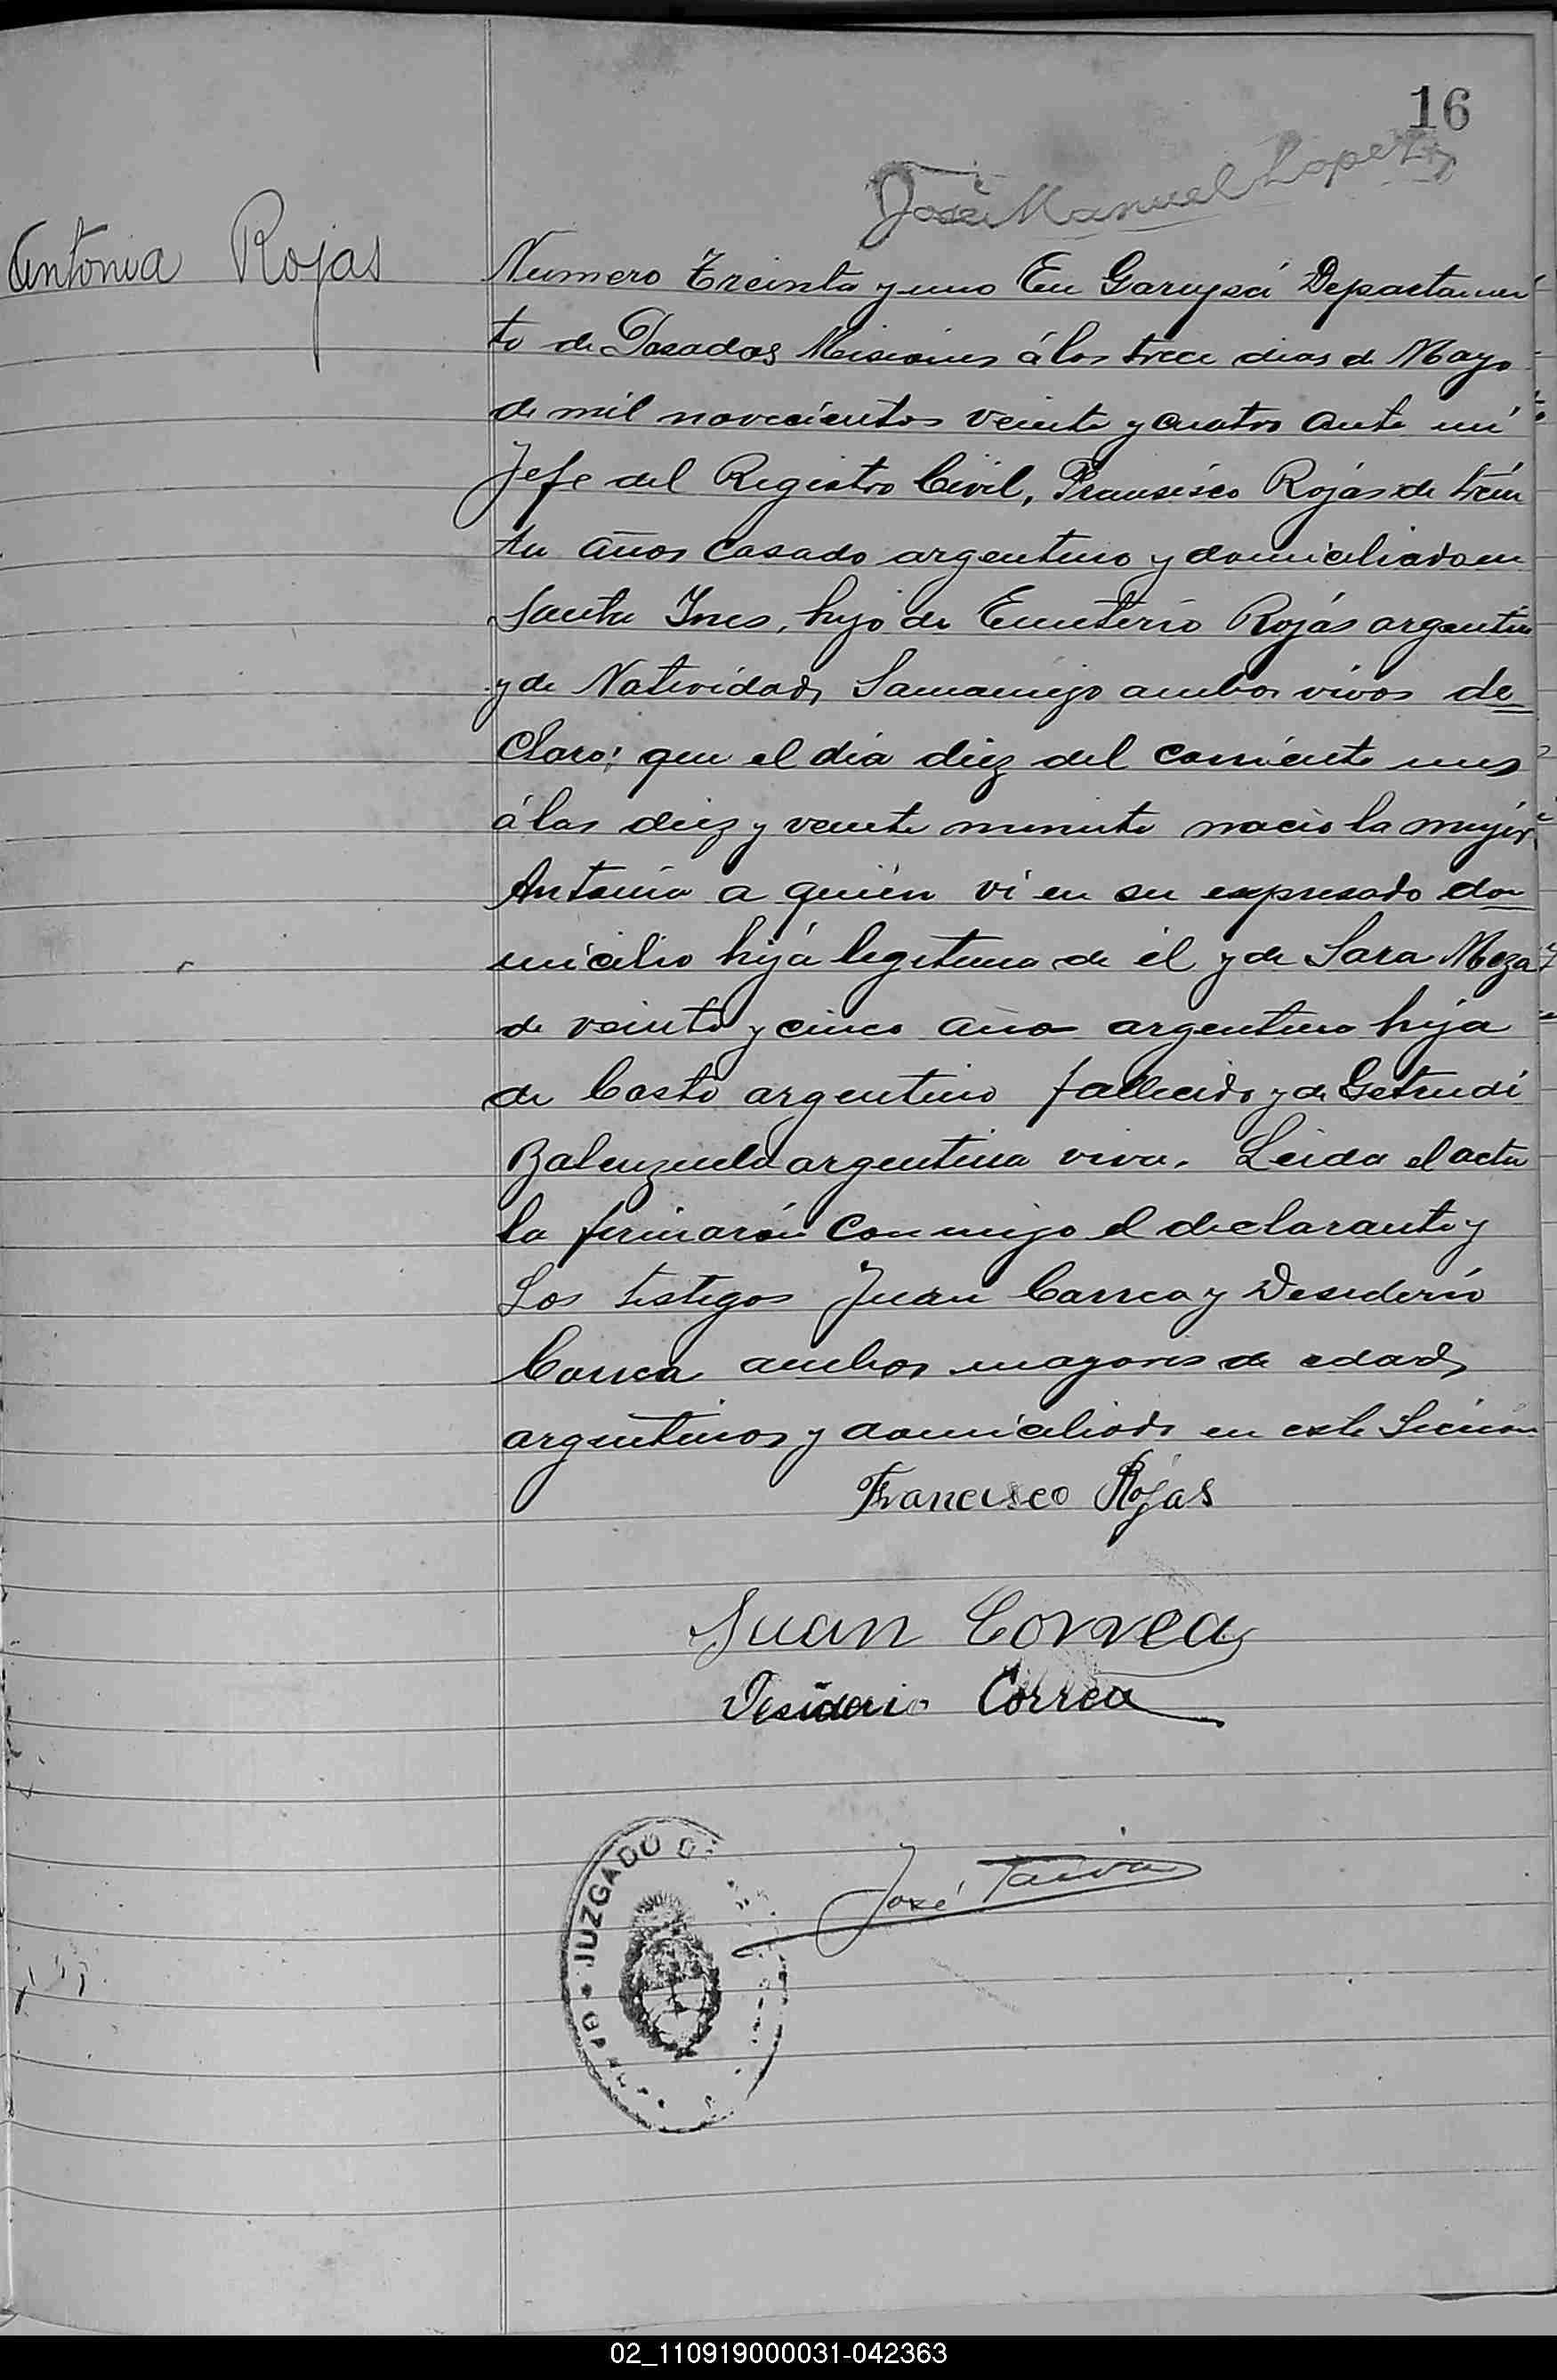 16
José Manuel Lopez
Antonia Rojas
Numero Treinta y uno En Garupá Departamen
to de Posadas Misiones á los trece dias de Mayo
de mil novecientos veinte y cuatro ante mi
Jefe del Registro Civil, Fransisco Rojas de trein
ta años casado argentino y domiciliado en
Santa Ines, hijo de Emeterio Rojas argentino
y de Natividad Samaniego ambos vivos de
claro: que el dia diez del corriente mes
á las diez y veinte minuto nacio la mujer
Antonia a quien vi en su expresado do
micilio hija legitima de él y de Sara Meza
de veinte y cinco año argentina hija
de Casto argentino fallecido y de Getrudi
Balenzuela argentina viva. Leida el acta
la firmarón conmigo el declarante y
Los testigos Juan Correa y Desiderio
Correa ambos mayores de edad
argentinos y domiciliado en este
Francisco Rojas
Juan Correa
Desiderio Correa
JUZGADO D
José
02_110919000031-042363